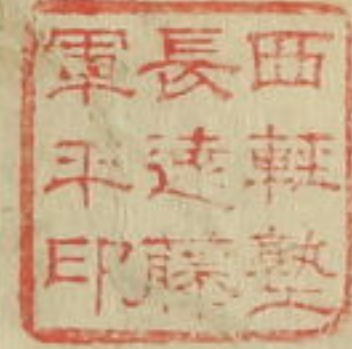 西軽塾
長遠藤
軍平印